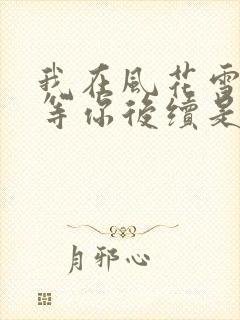 我在風花雪
等你後續是
月邪心